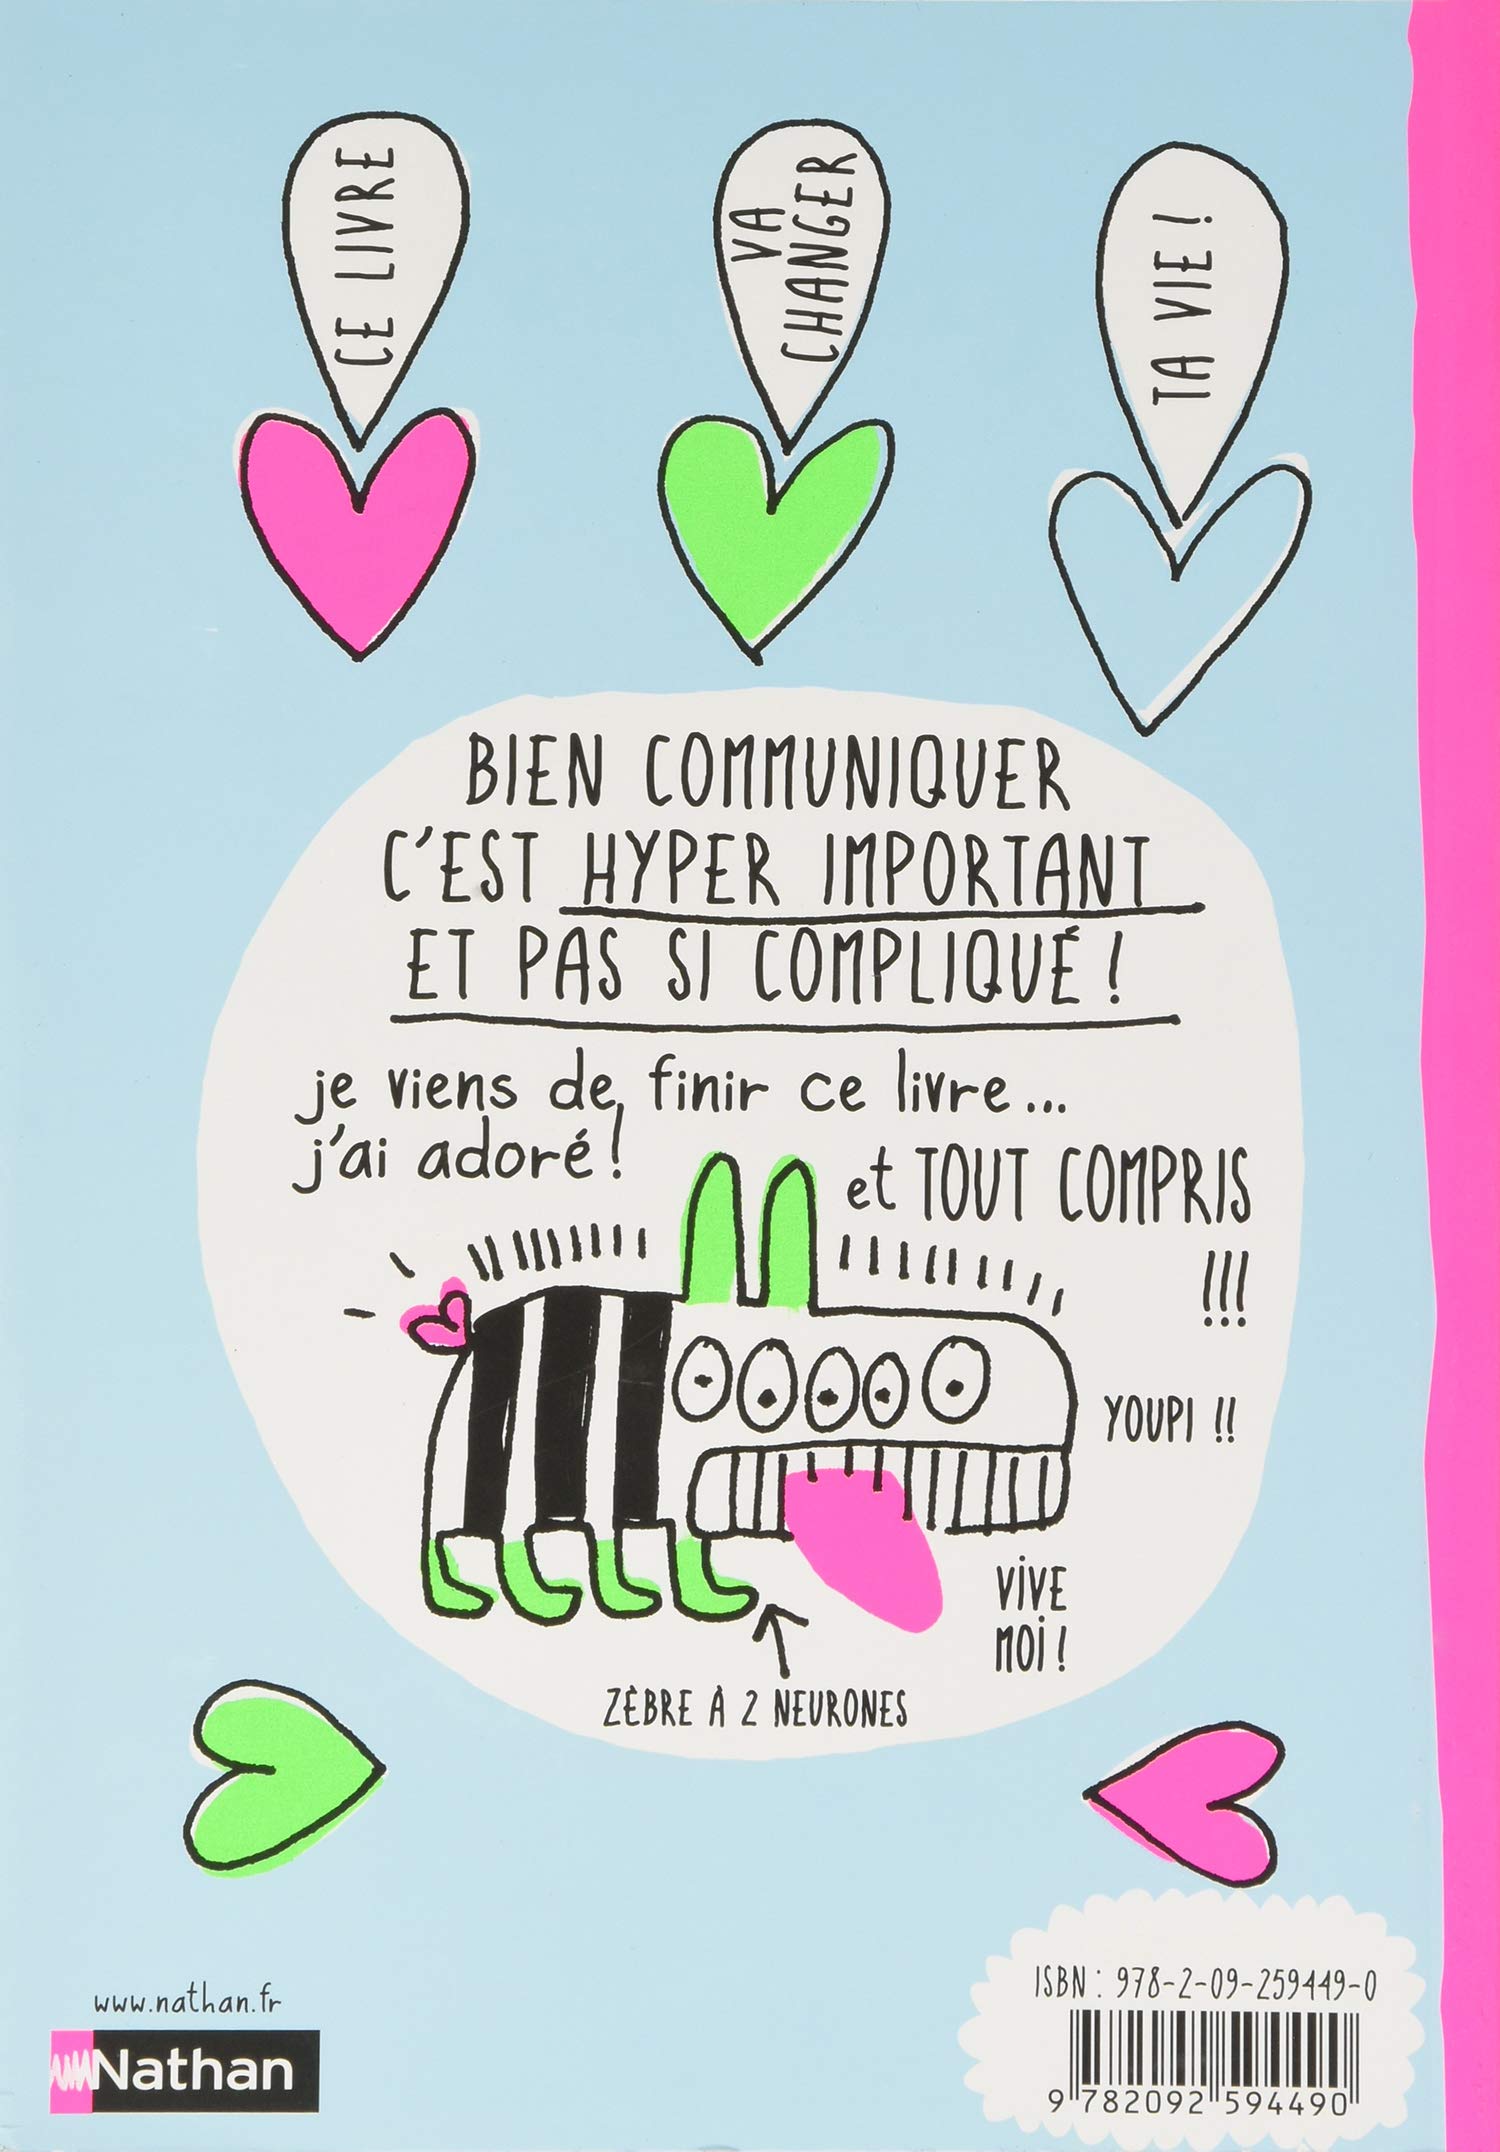 CE LIVRE
VA
CHANGER
TA VIE !
BIEN COMMUNIQUER
C'EST HYPER IMPORTANT
ET PAS SI COMPLIQUÉ !
je viens de finir ce livre...
j'ai adoré !
et TOUT COMPRIS
!!!
YOUPI !!
VIVE
MOI !
ZÈBRE À 2 NEURONES
www.nathan.fr
Nathan
ISBN : 978-2-09-259449-0
9 782092 594490